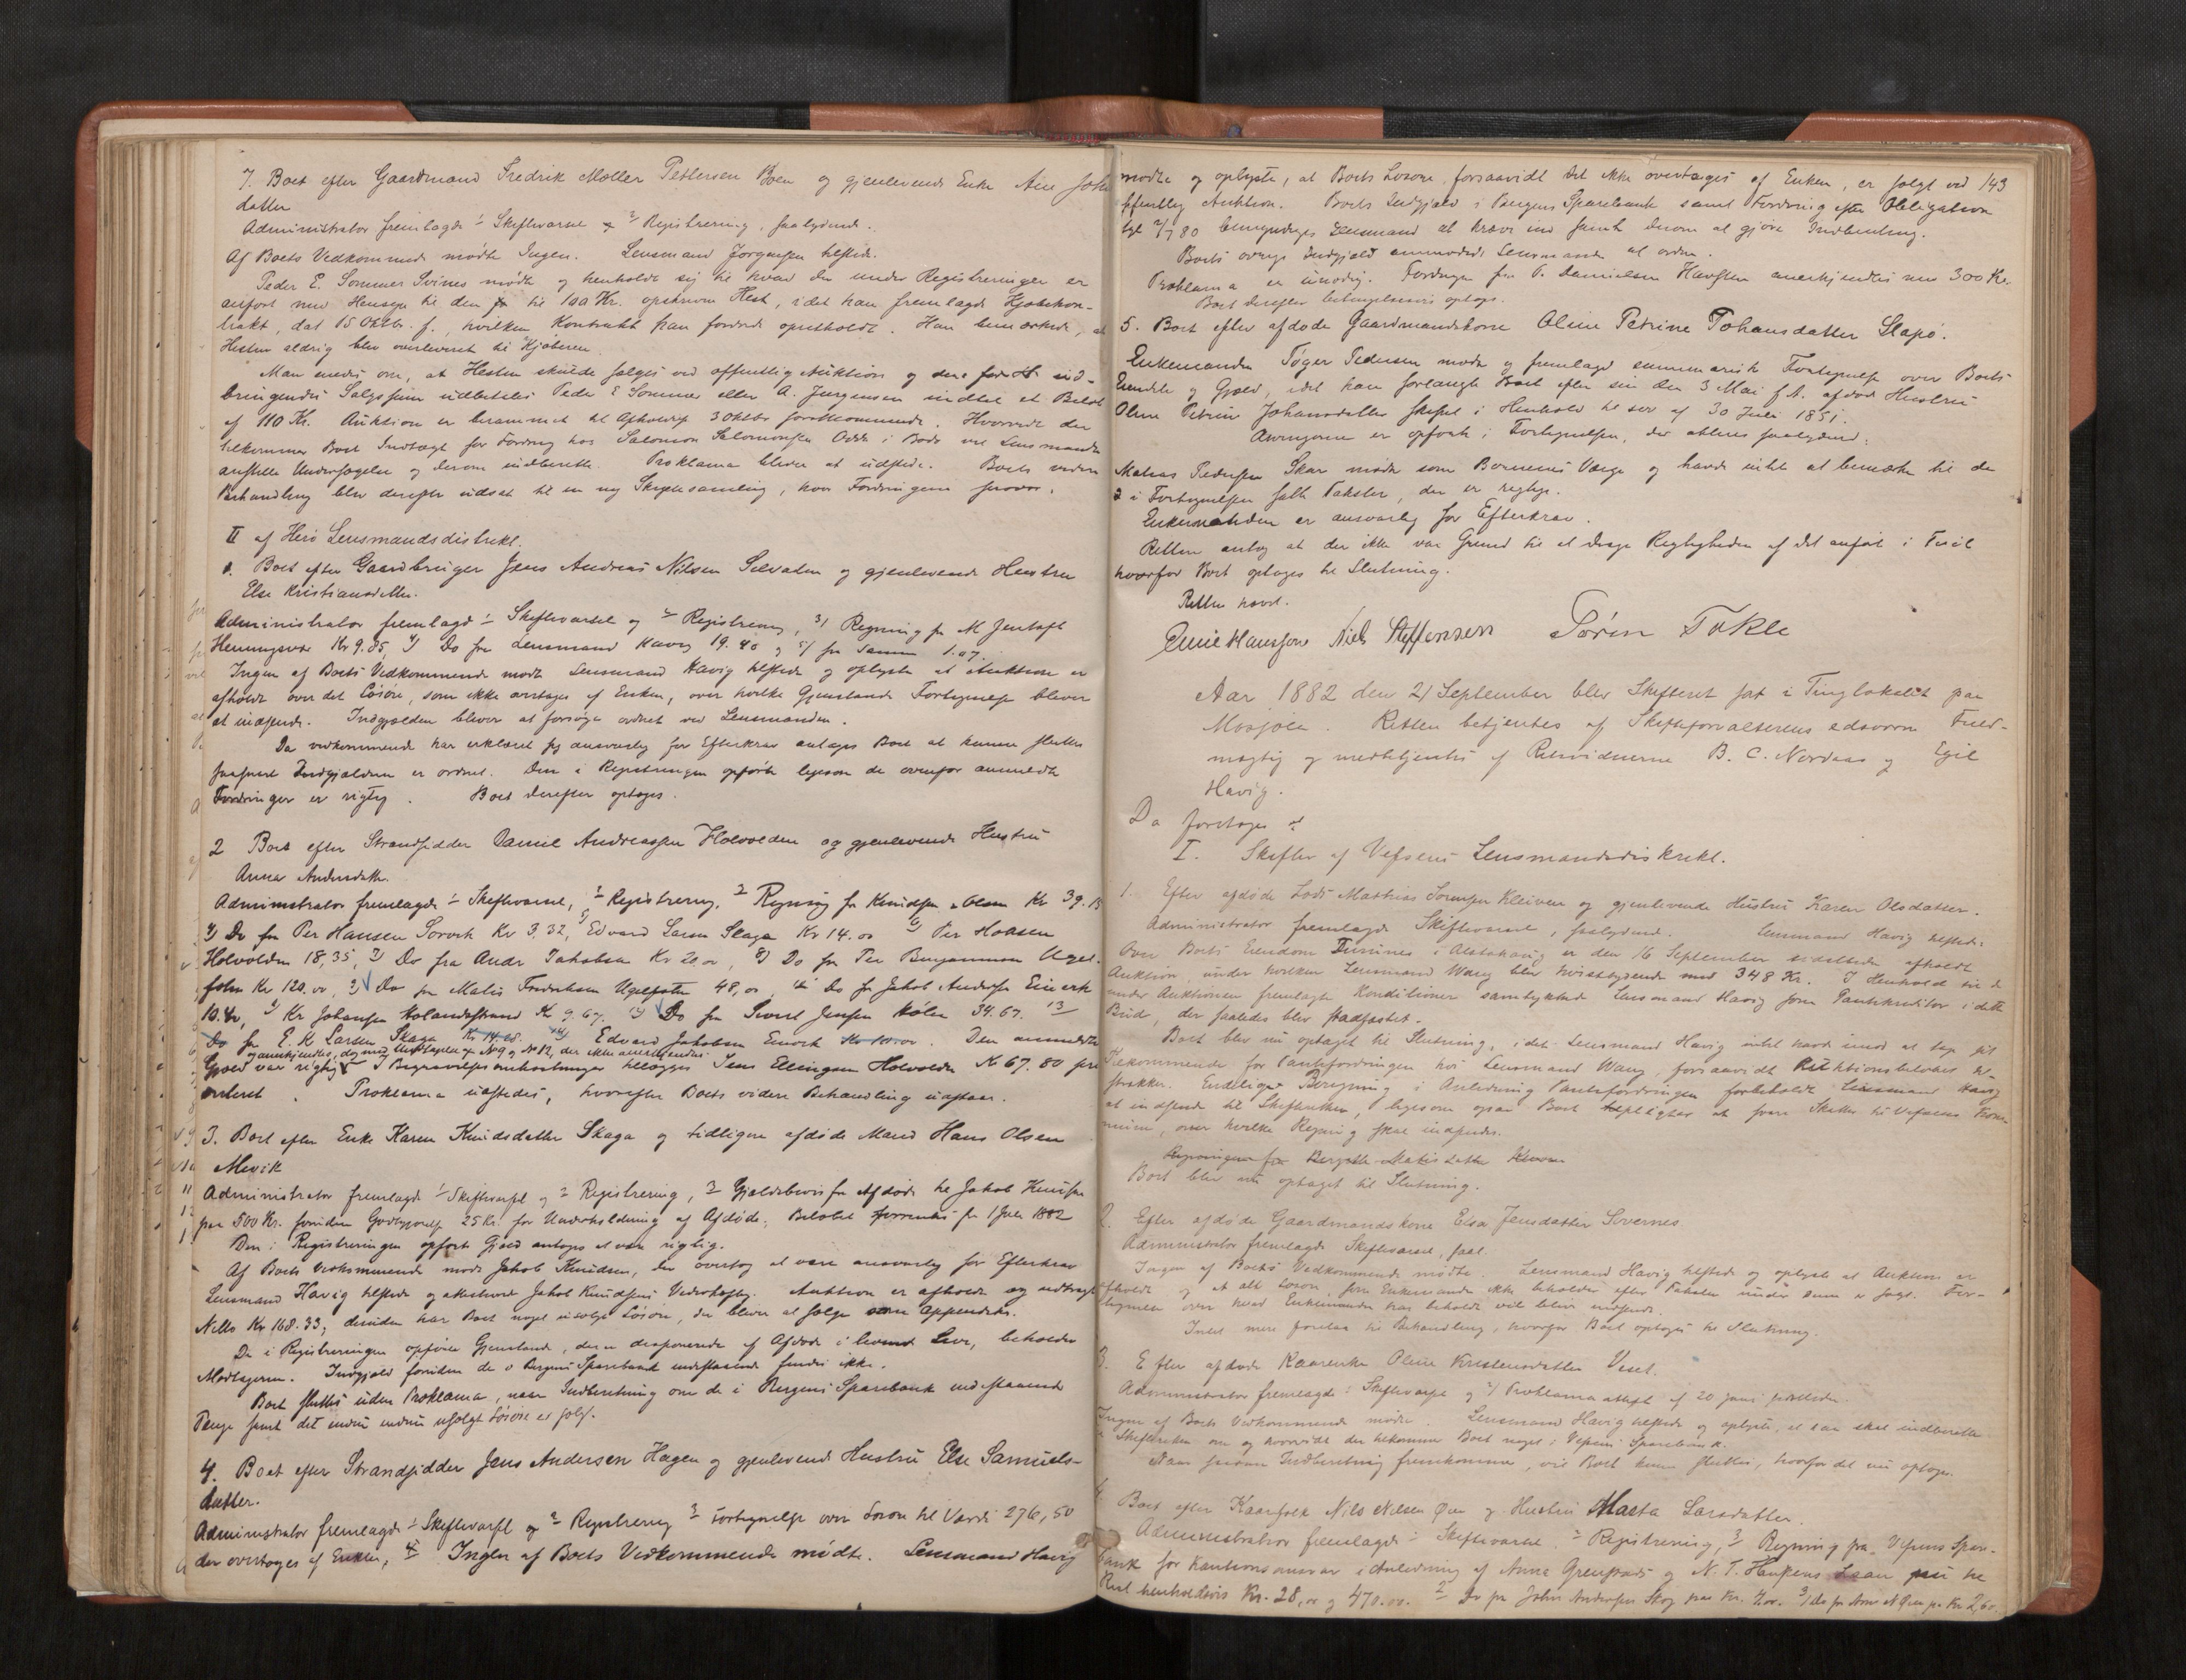 7. Boet efter Gaardmand Fredrik Møller Pettersen Boen og gjenlevende Enke Ane Joh
datter
Administrator fremlagde 1 Skiftevarsel og 2 Registrering, saalydende.
Af Boets Vedkommende mødte Ingen. Lensmand Jörgensen tilstede.
Peder E. Sommer Svines mødte og henholdt sig til hvad der under Registreringen er
anført med Hensyn til den for til 100 Kr. opskrevne Hest, idet han fremlagde Kjøbekon-
trakt, dat 15 Oktbr. f., hvilken Kontrakt han fordrede opretholdt. Han bemærkede, at
Hesten aldrig blev overleveret til Kjøberen.
Man enedes om, at Hesten skulde sælges ved offentlig Auktion og den for H. ind-
bringende Salgssum udbetales Peder E Sommer eller A. Jørgensen indtil et Beløb
af 110 Kr. Auktion er berammet til Afholdelse 3 Oktbr førstkommende. Hvorvidt der
tilkommer Boet Indtægt for Fordring hos Salomon Salomonsen Odde i Bodø vil Lensmanden
anstille Undersøgelse og derom indberette. Proklama bliver at udstede. Boets videre
Behandling blev derefter udsat til en ny Skiftesamling, hvor Fordringerne prøves.
II af Herø Lensmandsdistrikt.
1. Boet efter Gaardbruger Jens Andreas Nilsen Selvaden og gjenlevende Hustru
Else Kristiansdatter.
Administrator fremlagde 1 Skiftevarsel og 2 Registrering, 3) Regning fra M Jentoft
Henningsvær Kr 9.85, 4) Do fra Lensmand Havig 19.40 og 5) fra Samme 1.07.
Ingen af Boets Vedkommende mødte Lensmand Havig tilstede og oplyste at Auktion er
afholdt over det Løsøre, som ikke overtages af Enken, over hvilke Gjenstande Fortegnelse bliver
at indsende. Indgjælden bliver at forsøge ordnet ved Lensmanden.
Da vedkommende har erklæret sig ansvarlig for Efterkrav antages Boet at kunne sluttes
saasnart Indgjælden er ordnet. Den i Registreringen opførte ligesom de ovenfor anmeldte
Fordringer er rigtig. Boet derefter optages.
2 Boet efter Strandsidder Daniel Andreassen Holvolden og gjenlevende Hustru
Anna Andersdatter.
Administrator fremlagde 1 Skiftevarsel, 2 Registrering, 3 Regning fra Knudsen & Olsen Kr 39.15
4) Do fra Per Hansen Sørvik Kr 3.32, 5) Edvard Larsen Skaga Kr 14.00 6) Per Hoasen
Holvolden 18,35, 7) Do fra Andr Jakobsen Kr 20,00, 8) Do fra Per Benjaminsen Ugel-
solm Kr 120.00, 9) Do fra Matis Fredriksen 48,00, 10 Do fra Jakob Andersen Einvik
10.40, 11 Kr Johansen Kr 9.67. 12) Do fra Sivert Jensen 34.67. 13
Do fra E. K Larsen Skaga Kr 14.28. 14) Edvard Jakobsen Einvik Kr 10.00. Den anmeldte
og anerkjendtes, dog med Undtagelse af N 9 og N 12, der ikke anerkjendes
Gjæld var rigtig. I Begravelsesomkostninger tillægges Jens Ellingsen Holvolden Kr 67.80 præ
orieret. Proklama udstedes, hvorefter Boets videre Behandling udstaar.
3. Boet efter Enke Karen Knudsdatter Skaga og tidligere afdøde Mand Hans Olsen
Mevik
Administrator fremlagde 1 Skiftevarsel og 2 Registrering, 3 Gjældsbevis fra Afdøde til Jakob Knudsen
paa 500 Kr. foruden Godtgjørelse 25 Kr. for Underholdning af Afdøde; Beløbet forrentes fra 1 Juli 1882
Den i Registreringen opførte Gjæld antages at være rigtig.
Af Boets Vedkommende mødte Jakob Knudsen, der overtog at være ansvarlig for Efterkrav
Lensmand Havig tilstede og attesterede Jakob Knudsens Vederhæftig. Auktion er afholdt og udbragt
Netto Kr 168.33; desuden har Boet noget usolgt Løsøre, der bliver at sælge som Appendix.
De i Registreringen opførte Gjenstande, der er disponerede af Afdøde i levende Live, beholder
Modtageren. Indgjæld foruden de i Bergens Sparebank indestaaende findes ikke.
Boet sluttes uden Proklama, naar Indberetning om de i Bergens Sparebank indestaaende
Penge samt det endnu usolgt Løsøre er solgt.
4. Boet efter Strandsidder Jens Andersen Hagen og gjenlevende Hustru Else Samuels-
datter.
Administrator fremlagde 1 Skiftevarsel og 2 Registrering 3 Fortegnelse over Løsøre til Værdi 276,50
der overtages af Enken, 4 Ingen af Boets Vedkommende mødte. Lensmand Havig
143
mødte og oplyste, at Boets Løsøre, forsaavidt det ikke overtages af Enken, er solgt ved
offentlig Auktion. Boets Indgjæld i Bergens Sparebank samt Fordring efter Obligation
tgl 2/7 80 bemyndiges Lensmand at kræve ind samt derom at gjøre Indberetning.
Boets øvrige Indgjæld anmodedes Lensmanden at ordne.
Proklama er unødig. Fordringen fra P. Danielsen Havsten anerkjendtes med 300 Kr.
Boet derefter betingelsesvis optoges.
5. Boet efter afdøde Gaardmandskone Oline Petrine Johansdatter Slapö.
Enkemanden Töger Pedersen mødte og fremlagde summarisk Fortegnelse over Boets
Eiendele og Gjæld, idet han forlangte Boet efter sin den 3 Mai f. A. afdøde Hustru
Oline Petrine Johansdatter skiftet i Henhold til Lov af 30 Juli 1851.
Arvingerne er opført i Fortegnelsen, der atteres saalydend:
Matias Pedersen Skar mødte som Børnenes Værge og havde intet at bemærke til de
i Fortegnelsen satte Takster, der er rigtige.
Enkemanden er ansvarlig for Efterkrav.
Retten antog at der ikke var Grund til at drage Rigtigheden af det anførte i Tvivl
hvorfor Boet optages til Slutning.
Retten hævet.
Emil Hansson Niels Steffensen Sörin Tokle
Aar 1882 den 21 September blev Skifteret sat i Tinglokalet paa
Mosjøen. Retten betjentes af Skifteforvalterens edsvorne Fuld-
mægtig og medbetjentes af Retsvidnerne B. C. Nordaas og Egil
Havig.
Da foretoges
I. Skifter af Vefsens Lensmandsdistrikt.
1. Efter afdøde Lods Mathias Sørensen Kleiven og gjenlevende Hustru Karen Olsdatter.
Administrator fremlagde Skiftevarsel, saalydend. Lensmand Havig tilstede.
Over Boets Eiendom i Alstahaug er den 16 September sidstleden afholdt
Auktion, under hvilken Lensmand Wang blev høistbydende med 348 Kr. I Henhold til de
under Auktionen fremlagte Konditioner samtykkede Lensmand Havig som Pantekreditor i dette
Bud, der saaledes blev stadfæstet.
Boet blev nu optaget til Slutning, idet Lensmand Havig intet havde imod at tage sit
Tilkommende for Pantefordringen hos Lensmand Wang, forsaavidt Auktionsbeløbet til-
strækker. Endelig Beregning i Anledning Pantefordringen forbeholdt Lensmand Havig
at indsende til Skifteretten, ligesom ogsaa Boet tilpligter at svare Skatter til Vefsens Form-
, over hvilke Regning skal indsendes.
Regningen fra Bergitte Matisdatter
Boet blev nu optaget til Slutning.
2. Efter afdøde Gaardmandskone Elsa Jensdatter Sovernes.
Administrator fremlagde Skiftevarsel, saal.
Ingen af Boets Vedkommende mødte. Lensmand Havig tilstede og oplyste at Auktion er
afholdt og at alt Løsøre, som Enkemanden ikke beholder efter Taksten under Auktionen er solgt. For-
tegnelse over hvad Enkemanden har beholdt vil blive indsendt.
Intet mere forelaa til Behandling, hvorfor Boet optoges til Slutning.
3. Efter afdøde Kaarenke Oline Kristensdatter Veset.
Administrator fremlagde 1 Skiftevarsel og 2) Proklama attest af 20 Juni sidstleden
Ingen af Boets Vedkommende mødte. Lensmand Havig tilstede og oplyste, at han skal indberette
til Skifteretten om og hvorvidt der tilkommer Boet noget i Vefsens Sparebank.
Naar saadan Indberetning fremkommer, vil Boet kunne sluttes, hvorfor det nu optoges.
4. Boet efter Kaarfolk Nils Nilsen Øien og Hustru Marta Larsdatter.
Administrator fremlagde 1 Skiftevarsel 2 Registrering, 3 Regning fra Vefsens Spare-
bank for Kautionsansvar i Anledning af Anna Grenstads og N. T. Hansens Laan til
Rest henholdsvis Kr. 28,00 og 470.00. 2 Do fra John Andersen Skog paa Kr. 4.00. 3) Do fra Arne N Øien paa Kr 2,60